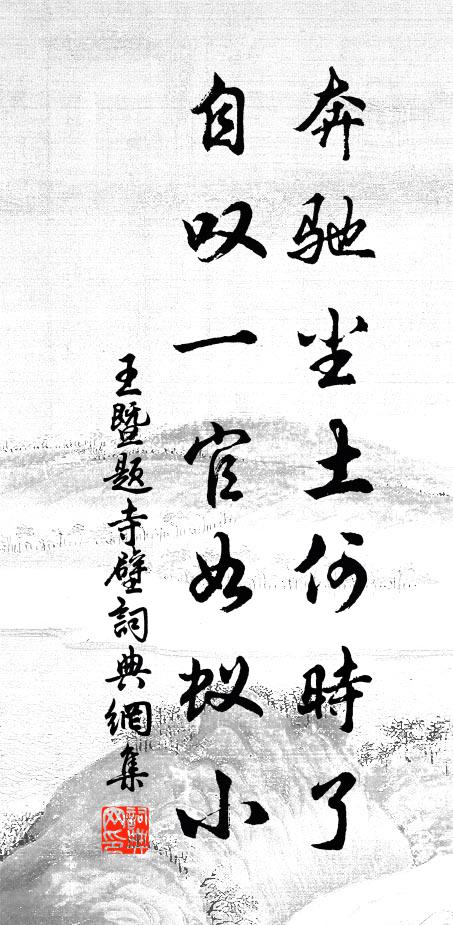 奔驰尘土何時了
自叹一官如蚁小
王暨题寺壁詞典網集